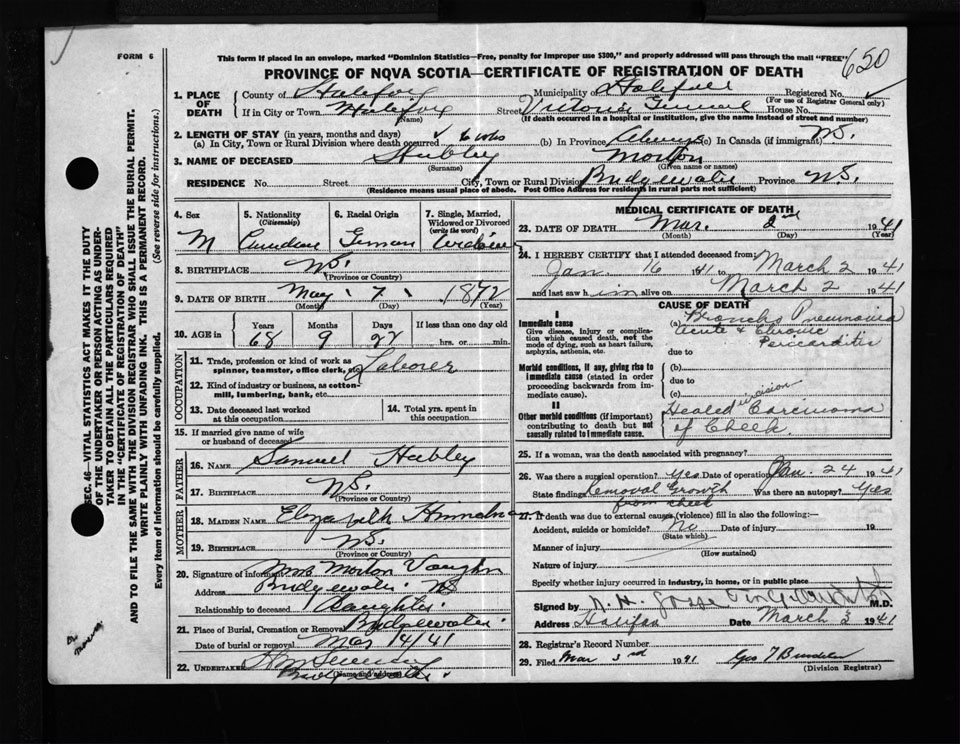 650
FORM 6
This form if placed in an envelope, marked "Dominion Statistics—Free, penalty for improper use $300," and properly addressed will pass through the mail "FREE"
PROVINCE OF NOVA SCOTIA—CERTIFICATE OF REGISTRATION OF DEATH
SEC. 46—VITAL STATISTICS ACT MAKES IT THE DUTY
OF THE UNDERTAKER OR PERSON ACTING AS UNDER-
TAKER TO OBTAIN ALL THE PARTICULARS REQUIRED
IN THE "CERTIFICATE OF REGISTRATION OF DEATH"
AND TO FILE THE SAME WITH THE DIVISION REGISTRAR WHO SHALL ISSUE THE BURIAL PERMIT.
WRITE PLAINLY WITH UNFADING INK. THIS IS A PERMANENT RECORD.
Every item of information should be carefully supplied. (See reverse side for instructions.)
1. PLACE OF DEATH
County of Halifax Municipality of Halifax Registered No.
(For use of Registrar General only)
If in City or Town Halifax Street Victoria General House No.
(Name) (If death occurred in a hospital or institution, give the name instead of street and number)
2. LENGTH OF STAY (in years, months and days)
(a) In City, Town or Rural Division where death occurred 6 wks (b) In Province Always (c) In Canada (if immigrant) N.S.
3. NAME OF DECEASED Hubley Morton
(Surname) (Given name or names)
RESIDENCE No. Street City, Town or Rural Division Bridgewater Province N.S.
(Residence means usual place of abode. Post Office Address for residents in rural parts not sufficient)
4. Sex M
5. Nationality (Citizenship) Canadian
6. Racial Origin German
7. Single, Married, Widowed or Divorced (write the word) Widower
8. BIRTHPLACE N.S.
(Province or Country)
9. DATE OF BIRTH May 7 1872
(Month) (Day) (Year)
10. AGE in Years Months Days If less than one day old
68 9 27 hrs. or min.
OCCUPATION
11. Trade, profession or kind of work as
spinner, teamster, office clerk, etc. Laborer
12. Kind of industry or business, as cotton
mill, lumbering, bank, etc.
13. Date deceased last worked
at this occupation
14. Total yrs. spent in
this occupation
15. If married give name of wife
or husband of deceased
FATHER
16. NAME Samuel Hubley
17. BIRTHPLACE N.S.
(Province or Country)
MOTHER
18. MAIDEN NAME Elizabeth
19. BIRTHPLACE N.S.
(Province or Country)
20. Signature of informant Mrs Morton Vaughn
Address Bridgewater NS
Relationship to deceased Daughter
21. Place of Burial, Cremation or Removal Bridgewater
Date of burial or removal Mar 4/41
22. UNDERTAKER
(Name and address)
MEDICAL CERTIFICATE OF DEATH
23. DATE OF DEATH Mar. 2nd 1941
(Month) (Day) (Year)
24. I HEREBY CERTIFY that I attended deceased from
Jan 16 1941 to March 2 1941
and last saw him alive on March 2 1941
CAUSE OF DEATH
I
Immediate cause
Give disease, injury or complica-
tion which caused death, not the
mode of dying, such as heart failure,
asphyxia, asthenia, etc.
(a) Broncho Pneumonia
acute & chronic
Pericarditis
due to
Morbid conditions, if any, giving rise to
immediate cause (stated in order
proceeding backwards from im-
mediate cause).
(b)
due to
(c)
II
Other morbid conditions (if important)
contributing to death but not
causally related to immediate cause.
Healed incision Carcinoma
of Cheek.
25. If a woman, was the death associated with pregnancy?
26. Was there a surgical operation? Yes Date of operation Jan. 24 1941
State findings Removal Growth Was there an autopsy? Yes
from cheek
27. If death was due to external causes (violence) fill in also the following:—
Accident, suicide or homicide? No Date of injury 19
(State which)
Manner of injury
(How sustained)
Nature of injury
Specify whether injury occurred in industry, in home, or in public place
Signed by M.D.
Address Halifax Date March 3 1941
28. Registrar's Record Number
29. Filed Mar 3rd 1941
(Division Registrar)